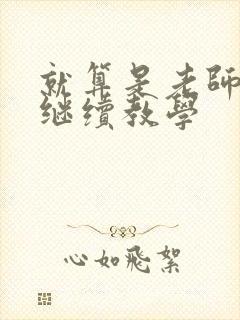 就算是老師
继續教學
心如飛絮